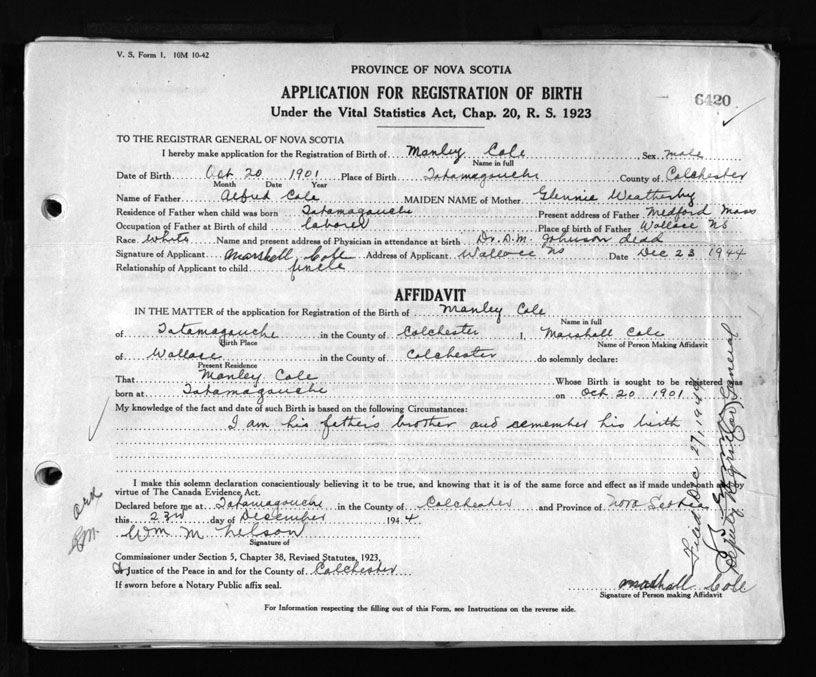 V. S. Form 1. 10M 10-42
PROVINCE OF NOVA SCOTIA
APPLICATION FOR REGISTRATION OF BIRTH
6420
Under the Vital Statistics Act, Chap. 20, R. S. 1923
TO THE REGISTRAR GENERAL OF NOVA SCOTIA
I hereby make application for the Registration of Birth of Manley Cole Sex male
Name in full
Date of Birth Oct 20 1901 Place of Birth Tatamagouche County of Colchester
Month Date Year
Name of Father Alfred Cole MAIDEN NAME of Mother Glennie Weatherby
Residence of Father when child was born Tatamagouche Present address of Father Medford Mass
Occupation of Father at Birth of child laborer Place of birth of Father Wallace NS
Race White Name and present address of Physician in attendance at birth Dr. D. M. Johnson dead
Signature of Applicant Marshall Cole Address of Applicant Wallace NS Date Dec 23 1944
Relationship of Applicant to child uncle
AFFIDAVIT
IN THE MATTER of the application for Registration of the Birth of Manley Cole
Name in full
of Tatamagouche in the County of Colchester I, Marshall Cole
Birth Place Name of Person Making Affidavit
of Wallace in the County of Colchester do solemnly declare:
Present Residence
That Manley Cole Whose Birth is sought to be registered was
born at Tatamagouche on Oct 20 1901
My knowledge of the fact and date of such Birth is based on the following Circumstances:
I am his father's brother and remember his birth
I make this solemn declaration conscientiously believing it to be true, and knowing that it is of the same force and effect as if made under oath and by
virtue of The Canada Evidence Act.
Declared before me at Tatamagouche in the County of Colchester and Province of Nova Scotia
this 23rd day of December 1944
Wm M Nelson
Signature of
Commissioner under Section 5, Chapter 38, Revised Statutes, 1923,
or Justice of the Peace in and for the County of Colchester
If sworn before a Notary Public affix seal.
Marshall Cole
Signature of Person making Affidavit
For Information respecting the filling out of this Form, see Instructions on the reverse side.
Filed Dec 27, 1944
Deputy Registrar General